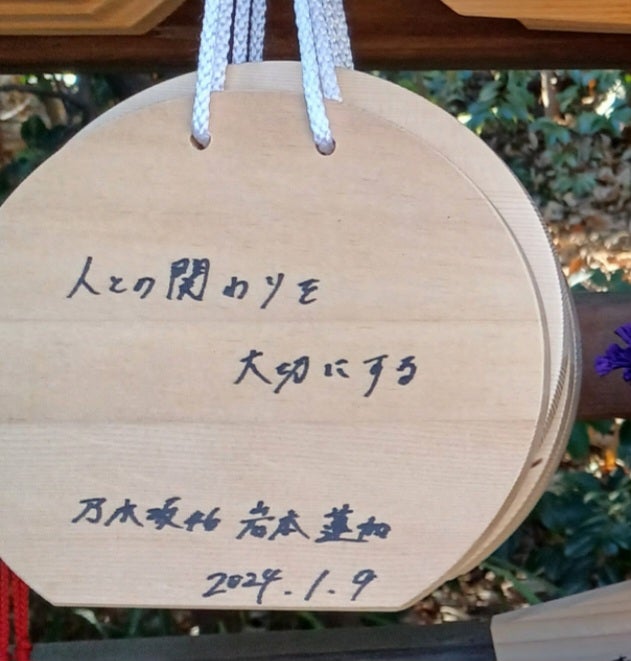 人との関わりを
大切にする
乃木坂46 岩本蓮加
2024.1.9